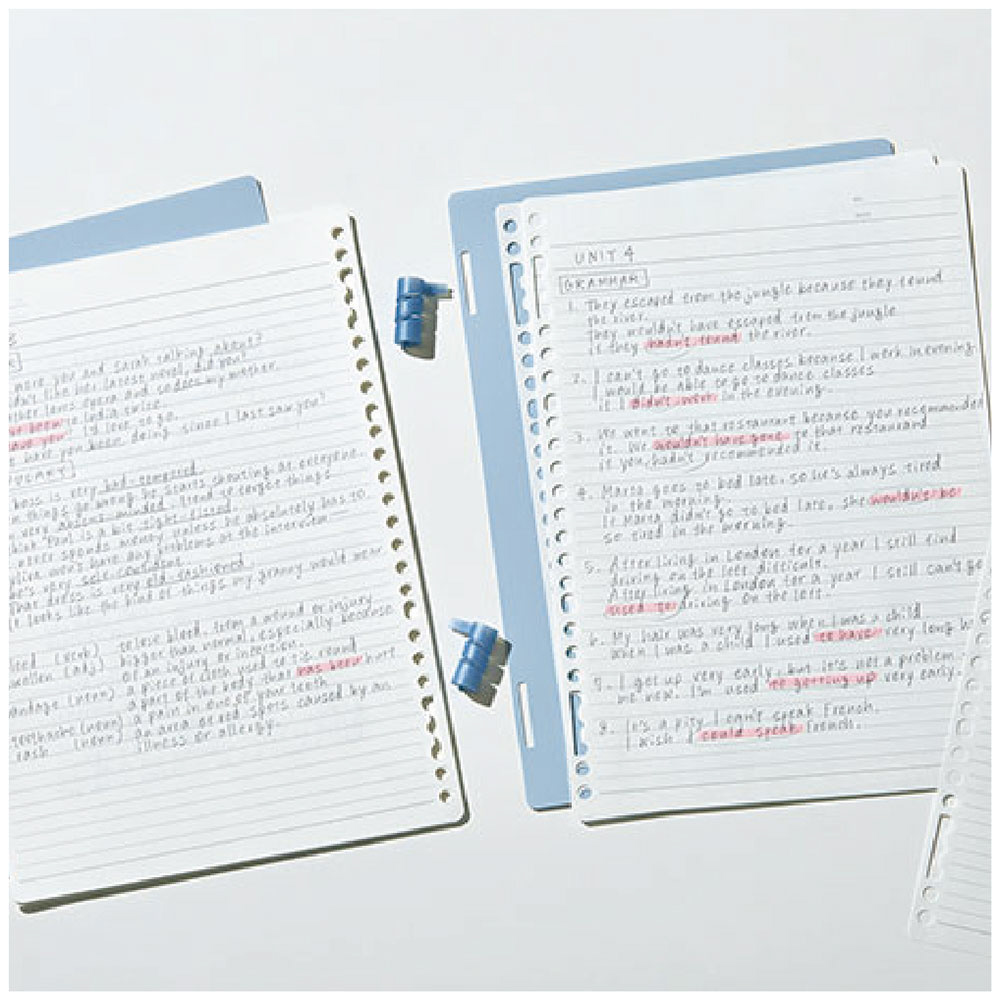 more you and Sarah talking about?
like her latest novel, did you?
loves opera and so does my mother.
been to India twice.
I'd love to go.
have you been doing since I last saw you?
boss is very bad-tempered
things go wrong he starts shouting at everyone.
very absent-minded, I tend to forget things
Paul is a bit tight-fisted
never spends money unless he absolutely has to.
won't have any problems at the interview
he's very self-confident
That dress is very old-fashioned
looks like the kind of things my granny would wear
(verb) to lose blood, from a wound or injury
(adj) bigger than normal, especially because
of an injury or infection.
(noun) a piece of cloth used to tie round
a part of the body that has been hurt
(noun) a pain in one of your teeth
rash (noun) an area of red spots caused by an
illness or allergy.
UNIT 4
GRAMMAR
1. They escaped from the jungle because they found
the river.
They wouldn't have escaped from the jungle
if they hadn't found the river.
2. I can't go to dance classes because I work in evening.
I would be able to go to dance classes
if I didn't work in the evening.
3. We went to that restaurant because you recommended
it. We wouldn't have gone to that restaurant
if you hadn't recommended it.
4. Marta goes to bed late, so he's always tired
in the morning.
If Marta didn't go to bed late, she wouldn't be
so tired in the morning.
5. After living in London for a year I still find
driving on the left difficult.
After living in London for a year I still can't ge
used to driving on the left.
6. My hair was very long when I was a child
When I was a child I used to have very long
7. I get up very early, but it's not a problem
me now. I'm used to getting up very early.
8. It's a pity I can't speak French.
I wish I could speak French.